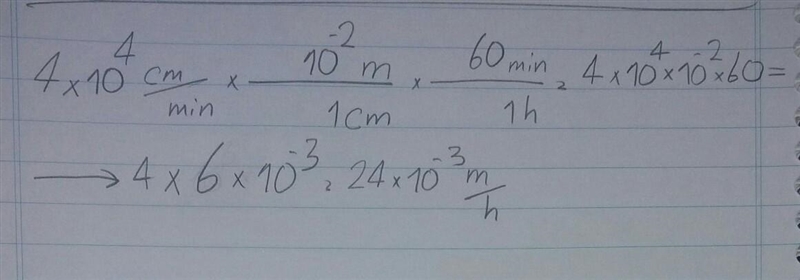 4 × 10⁴ cm/min × 10⁻² m/1cm × 60 min/1h = 4 × 10⁴ × 10⁻² × 60 =
→ 4 × 6 × 10⁻³ = 24 × 10⁻³ m/h